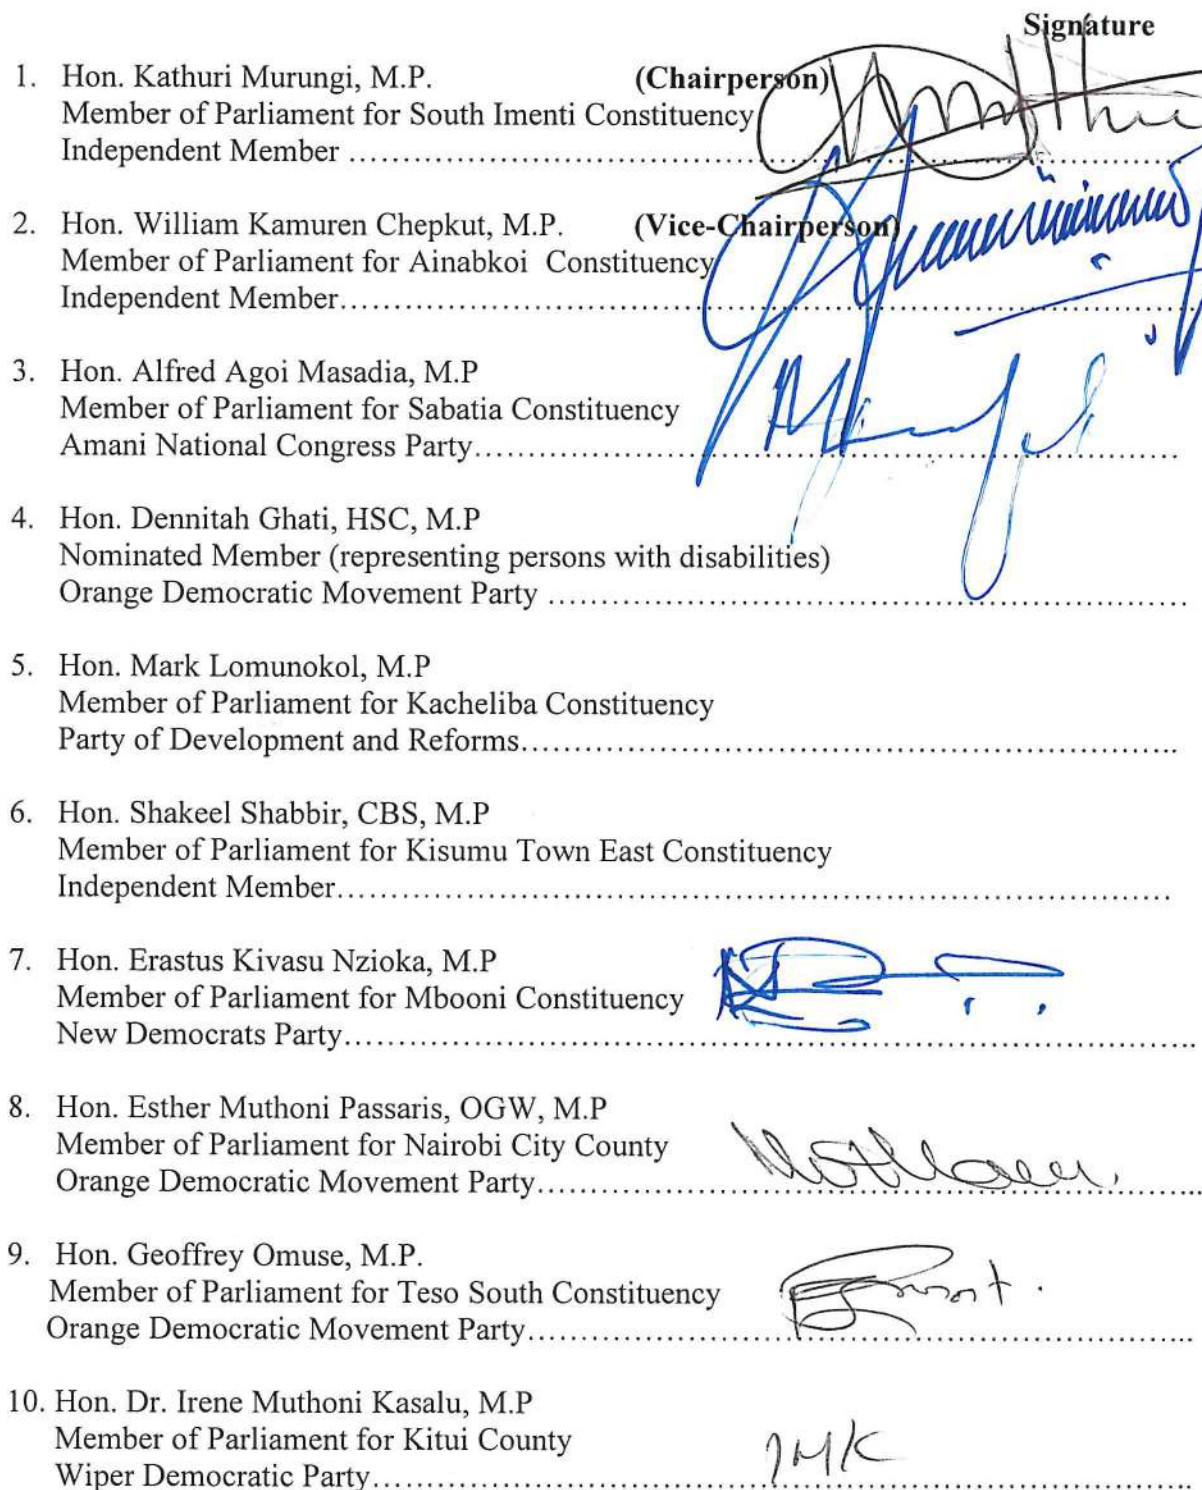 Signature
1. Hon. Kathuri Murungi, M.P. (Chairperson)
Member of Parliament for South Imenti Constituency
Independent Member ................................................................
2. Hon. William Kamuren Chepkut, M.P. (Vice-Chairperson)
Member of Parliament for Ainabkoi Constituency
Independent Member................................................................
3. Hon. Alfred Agoi Masadia, M.P
Member of Parliament for Sabatia Constituency
Amani National Congress Party................................................................
4. Hon. Dennitah Ghati, HSC, M.P
Nominated Member (representing persons with disabilities)
Orange Democratic Movement Party ................................................................
5. Hon. Mark Lomunokol, M.P
Member of Parliament for Kacheliba Constituency
Party of Development and Reforms................................................................
6. Hon. Shakeel Shabbir, CBS, M.P
Member of Parliament for Kisumu Town East Constituency
Independent Member................................................................
7. Hon. Erastus Kivasu Nzioka, M.P
Member of Parliament for Mbooni Constituency
New Democrats Party................................................................
8. Hon. Esther Muthoni Passaris, OGW, M.P
Member of Parliament for Nairobi City County
Orange Democratic Movement Party................................................................
9. Hon. Geoffrey Omuse, M.P.
Member of Parliament for Teso South Constituency
Orange Democratic Movement Party................................................................
10. Hon. Dr. Irene Muthoni Kasalu, M.P
Member of Parliament for Kitui County
IMK
Wiper Democratic Party................................................................